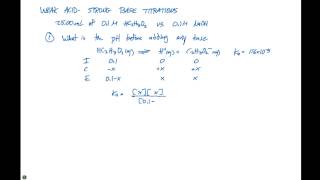 WEAK ACID- STRONG BASE TITRATIONS
25.00 mL of 0.1 M HC₂H₃O₂ vs. 0.1 M NaOH
① What is the pH before adding any base
HC₂H₃O₂ (aq) ⇌ H⁺(aq) + C₂H₃O₂⁻ (aq) Ka =
I 0.1 0 0
C -x +x +x
E 0.1-x x x
Ka = [x][x]
[0.1-